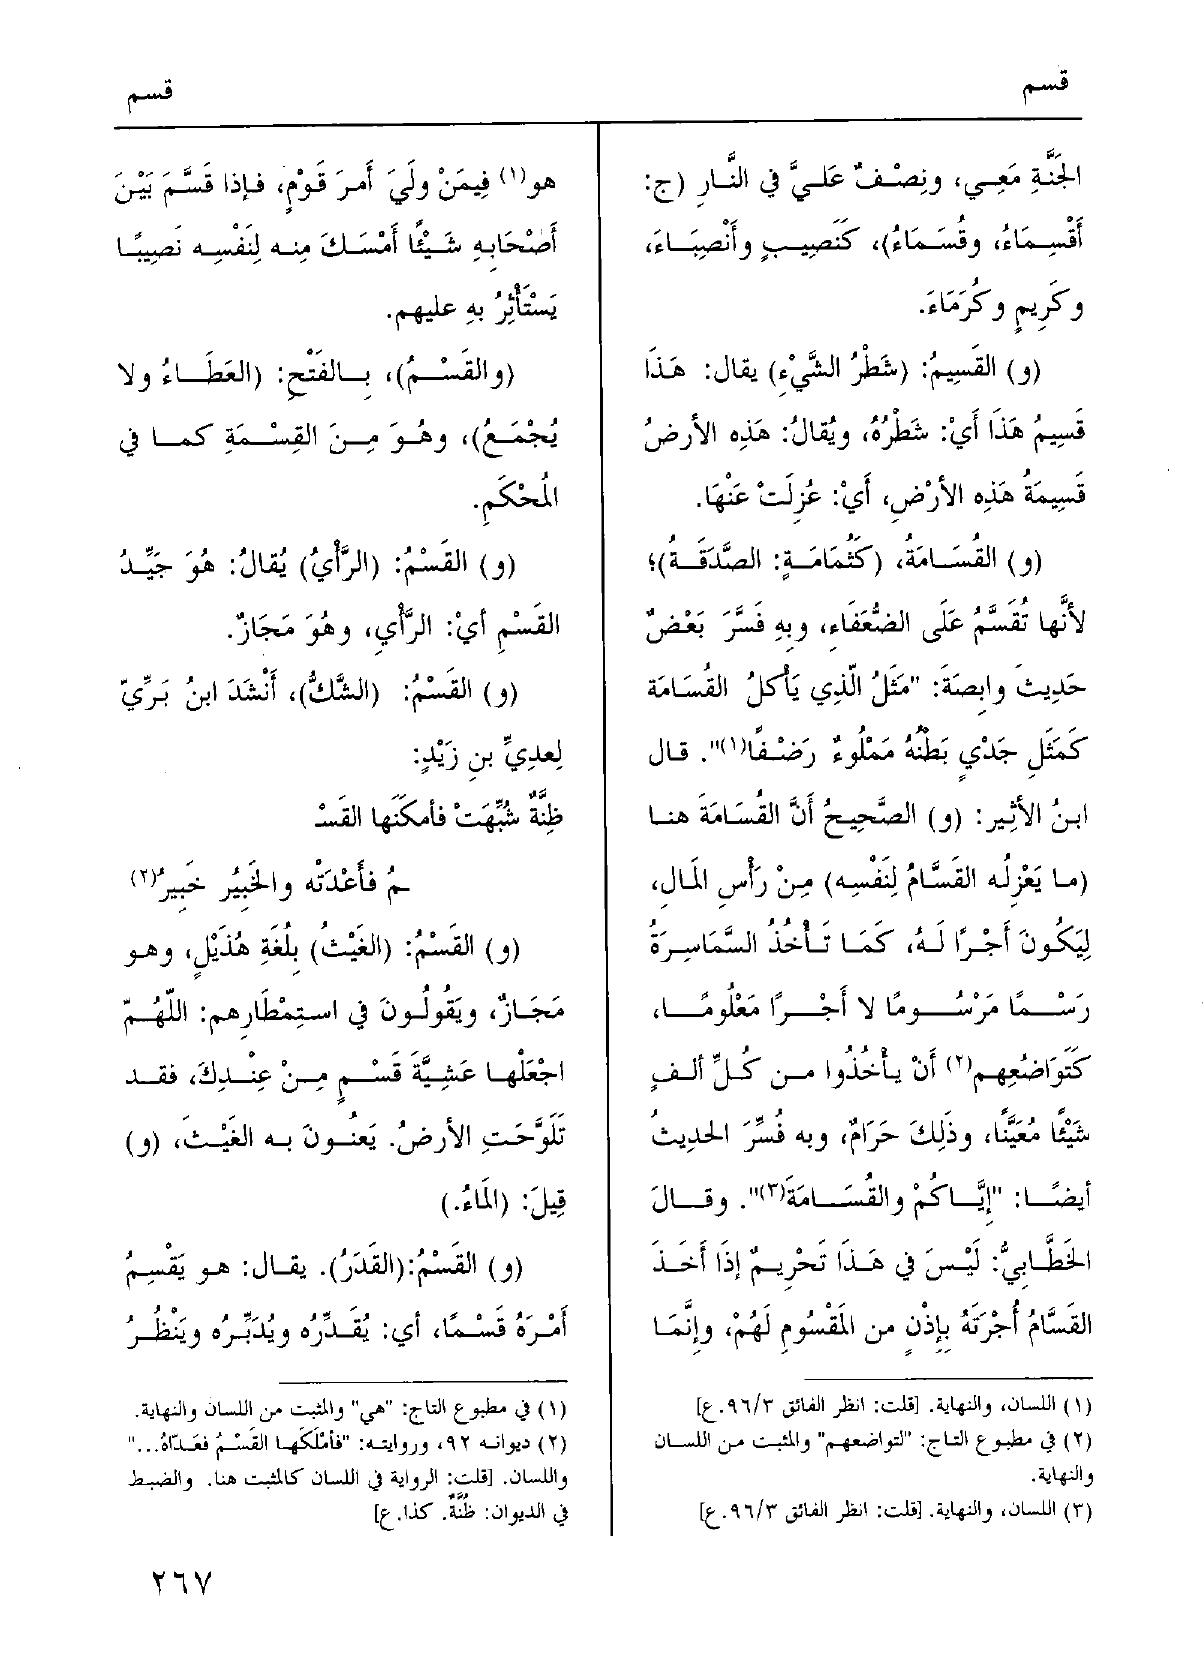 قسم
قسم
الجَنَّةِ مَعِي، ونِصْفٌ عَلَيَّ في النَّارِ (ج:
أَقْسِمَاءُ، وقُسَمَاءُ)، كَنَصِيبٍ وأَنْصِبَاءَ،
وكَرِيمٍ وكُرَمَاءَ.
(و) القَسِيمُ: (شَطْرُ الشَّيْءِ) يقال: هَذَا
قَسِيمُ هَذَا أَيْ: شَطْرُهُ، ويُقَالُ: هَذِه الأرضُ
قَسِيمَةُ هَذِه الأرْضِ، أَيْ: عُزِلَتْ عَنْهَا.
(و) القُسَامَةُ، (كَثُمَامَةٍ: الصَّدَقَةُ)؛
لأَنَّها تُقَسَّمُ عَلَى الضُّعَفَاءِ، وبِهِ فَسَّرَ بَعْضٌ
حَدِيثَ وابِصَةَ: "مَثَلُ الَّذِي يَأْكلُ القُسَامَة
كَمَثَلِ جَدْيٍ بَطْنُهُ مَمْلُوءٌ رَضْفًا(١)". قال
ابنُ الأَثِيرِ: (و) الصَّحِيحُ أنَّ القُسَامَةَ هنا
(ما يَعْزِلُه القَسَّامُ لِنَفْسِه) مِنْ رَأْسِ المَالِ،
لِيَكُونَ أَجْرًا لَهُ، كَمَا تَأْخُذُ السَّمَاسِرَةُ
رَسْمًا مَرْسُومًا لا أَجْرًا مَعْلُومًا،
كَتَوَاضُعِهِم(٢) أَنْ يأخُذُوا من كُلِّ ألفٍ
شَيْئًا مُعَيَّنًا، وذَلِكَ حَرَامٌ، وبه فُسِّرَ الحَدِيثُ
أيضًا: "إِيَّاكُمْ والقُسَامَةَ(٣)". وقَالَ
الخَطَّابِيُّ: لَيْسَ في هَذَا تَحْرِيمٌ إذَا أَخَذَ
القَسَّامُ أُجْرَتَهُ بِإِذْنٍ من المَقْسُومِ لَهُمْ، وإنَّمَا
(١) اللسان، والنهاية. [قلت: انظر الفائق ٩٦/٣.ع]
(٢) في مطبوع التاج: "لتواضعهم" والمثبت من اللسان
والنهاية.
(٣) اللسان، والنهاية. [قلت: انظر الفائق ٩٦/٣.ع]
هو(١) فِيمَنْ ولِيَ أَمرَ قَوْمٍ، فإذا قَسَّمَ بَيْنَ
أصْحَابِهِ شَيْئًا أمْسَكَ مِنه لِنَفْسِه نَصِيبًا
يَسْتَأْثِرُ بهِ عليهم.
(والقَسْمُ)، بِالفَتْحِ: (العَطَاءُ ولا
يُجْمَعُ)، وهُوَ مِنَ القِسْمَةِ كما في
المُحْكَمِ.
(و) القَسْمُ: (الرَّأْيُ) يُقالُ: هُوَ جَيِّدُ
القَسْمِ أيْ: الرَّأْيِ، وهُوَ مَجَازٌ.
(و) القَسْمُ: (الشَّكُّ)، أَنْشَدَ ابنُ بَرِّيّ
لِعدِيِّ بنِ زَيْدٍ:
ظِنَّةٌ شُبِّهَتْ فأمكَنَها القَسْـ
ـمُ فأَعْدَتْه والخَبِيُر خَبِيرُ(٢)
(و) القَسْمُ: (الغَيْثُ) بِلُغَةِ هُذَيْلٍ، وهو
مَجَازٌ، ويَقُولُونَ في استِمْطَارِهم: اللَّهُمّ
اجْعَلْها عَشِيَّةَ قَسْمٍ مِنْ عِنْدِكَ، فقد
تَلَوَّحَتِ الأرضُ. يَعنُونَ به الغَيْثَ، (و)
قِيلَ: (المَاءُ.)
(و) القَسْمُ:(القَدَرُ). يقال: هو يَقْسِمُ
أَمْرَهُ قَسْمًا، أي: يُقَدِّرُه ويُدَبِّرُه ويَنْظُرُ
(١) في مطبوع التاج: "هي" والمثبت من اللسان والنهاية.
(٢) ديوانه ٩٢، وروايته: "فأمْلَكَها القَسْمُ فعَدّاهُ..."
واللسان. [قلت: الرواية في اللسان كالمثبت هنا. والضبط
في الديوان: ظُنَّةٌ. كذا.ع]
٢٦٧